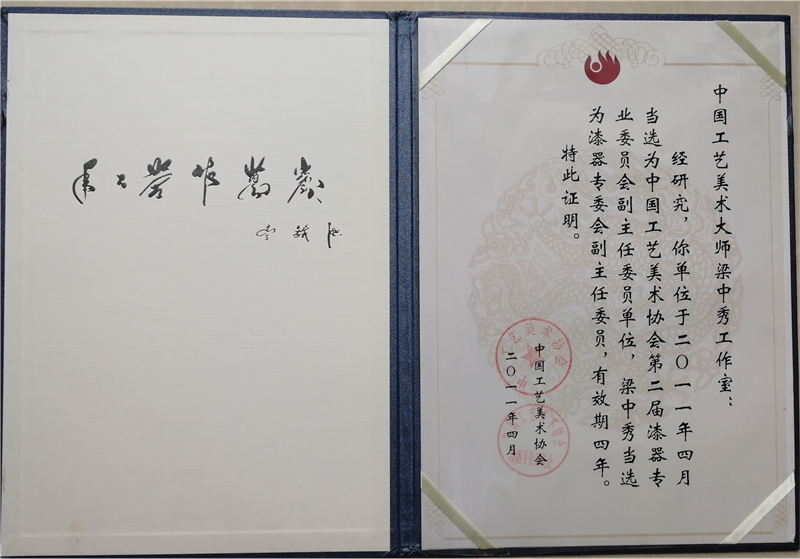 中国工艺美术大师梁中秀工作室：
经研究，你单位于二〇一一年四月
当选为中国工艺美术协会第二届漆器专
业委员会副主任委员单位，梁中秀当选
为漆器专委会副主任委员，有效期四年。
特此证明。
中国工艺美术协会
二〇一一年四月